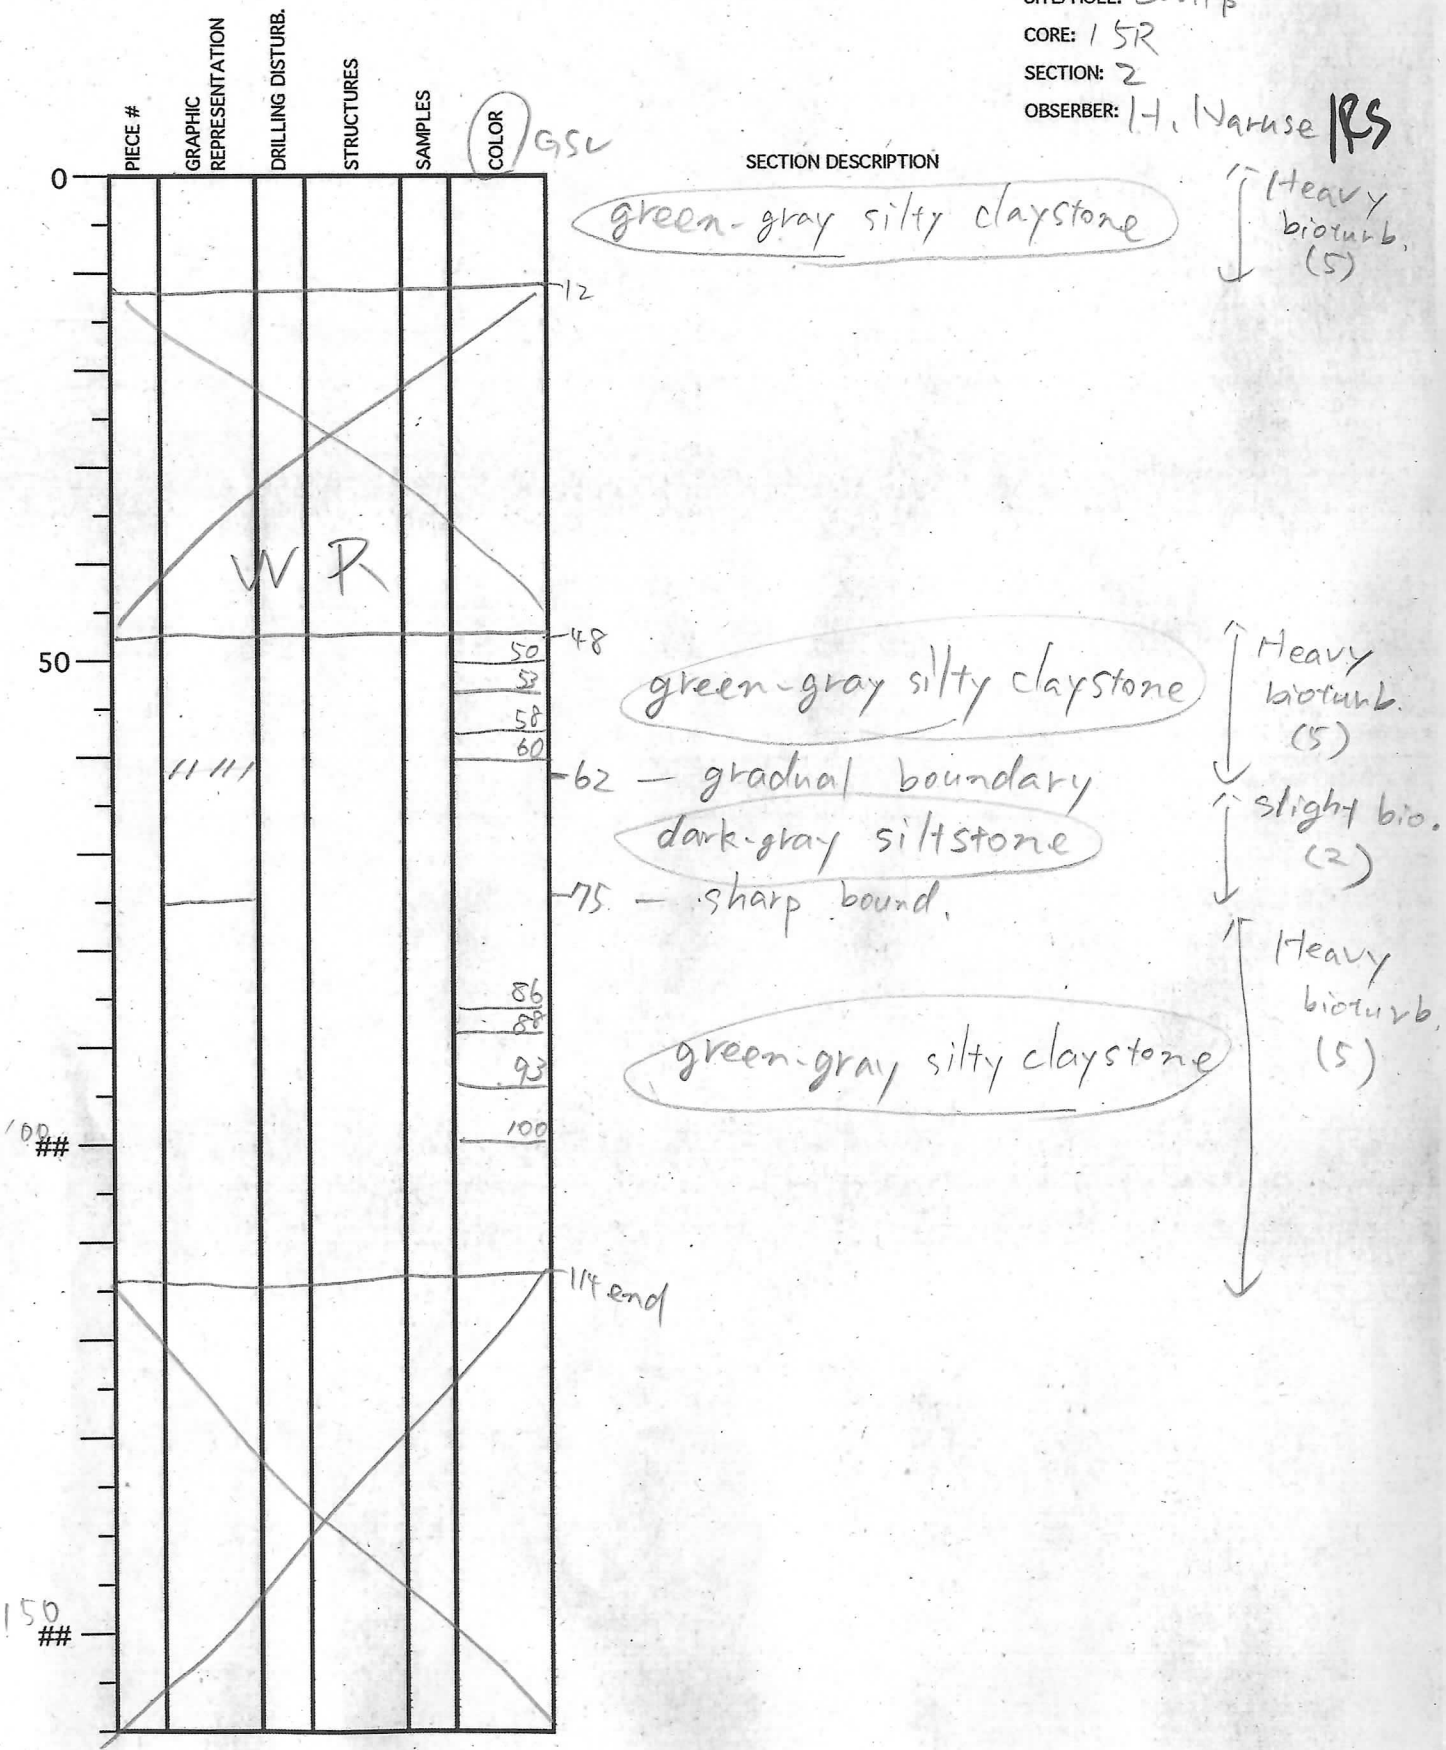 CORE: 15R
SECTION: 2
OBSERBER: H. Naruse /RS
PIECE #
GRAPHIC
REPRESENTATION
DRILLING DISTURB.
STRUCTURES
SAMPLES
COLOR
SECTION DESCRIPTION
0
green-gray silty claystone
Heavy
bioturb.
(5)
12
WR
48
50
50
53
58
60
green-gray silty claystone
Heavy
bioturb.
(5)
62 — gradual boundary
dark-gray siltstone
slight bio.
(2)
75 — sharp bound.
86
88
93
100
green-gray silty claystone
Heavy
bioturb.
(5)
100
##
114 end
150
##